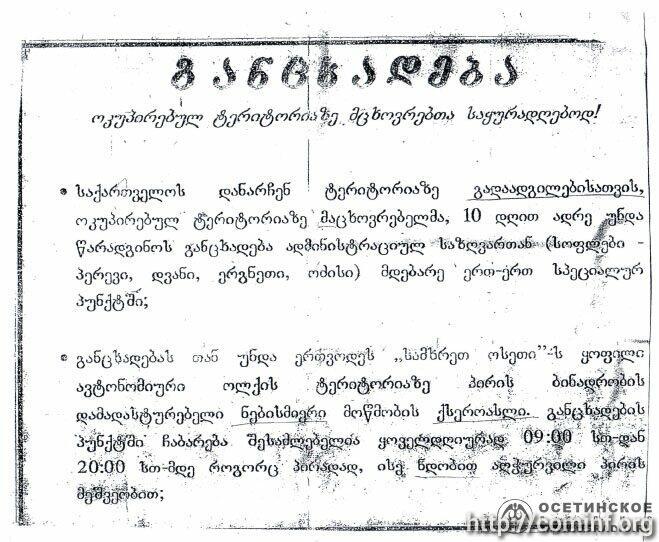 განცხადება
ოკუპირებულ ტერიტორიაზე მცხოვრებთა საყურადღებოდ!
• საქართველოს დანარჩენ ტერიტორიაზე გადაადგილებისათვის,
ოკუპირებულ ტერიტორიაზე მაცხოვრებელმა, 10 დღით ადრე უნდა
წარადგინოს განცხადება ადმინისტრაციულ საზღვართან (სოფლები -
პერევი, დვანი, ერგნეთი, ოძისი) მდებარე ერთ-ერთ სპეციალურ
პუნქტში;
• განცხადებას თან უნდა ერთვოდეს „სამხრეთ ოსეთი”-ს ყოფილი
ავტონომიური ოლქის ტერიტორიაზე პირის ბინადრობის
დამადასტურებელი ნებისმიერი მოწმობის ქსეროასლი. განცხადების
პუნქტში ჩაბარება შესაძლებელია ყოველდღიურად 09:00 სთ-დან
20:00 სთ-მდე როგორც პირადად, ისე ნდობით აღჭურვილი პირის
მეშვეობით;
ОСЕТИНСКОЕ
http://cominf.org